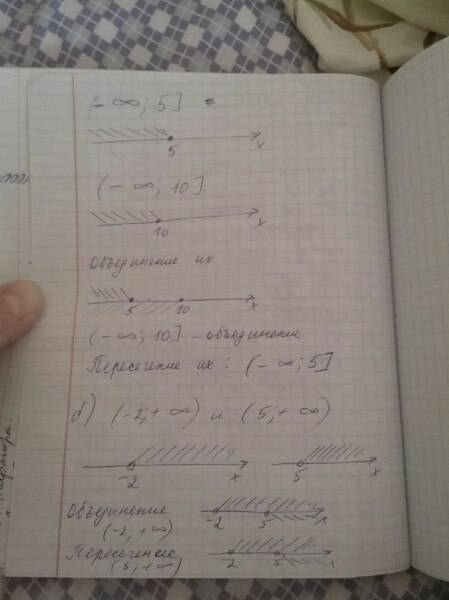 (-∞; 5]
5 x
(-∞, 10]
10 x
Объединение их
5 10 x
(-∞; 10] - объединение
Пересечение их: (-∞; 5]
б) (-2;+∞) и (5;+∞)
-2 x 5 x
Объединение -2 5 x
(-2, +∞)
Пересечение -2 5 x
(5, +∞)